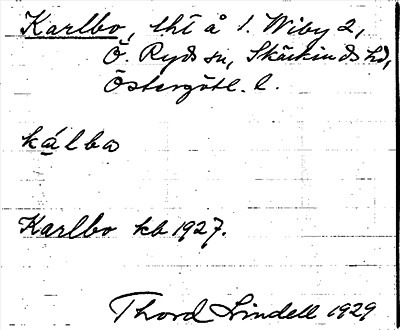 Karlbo, tht å 1. Wiby 2,
Ö. Ryds sn, Skärkinds hd,
Östergötl. l.
kálba
Karlbo kb 1927.
Thord Lindell 1929